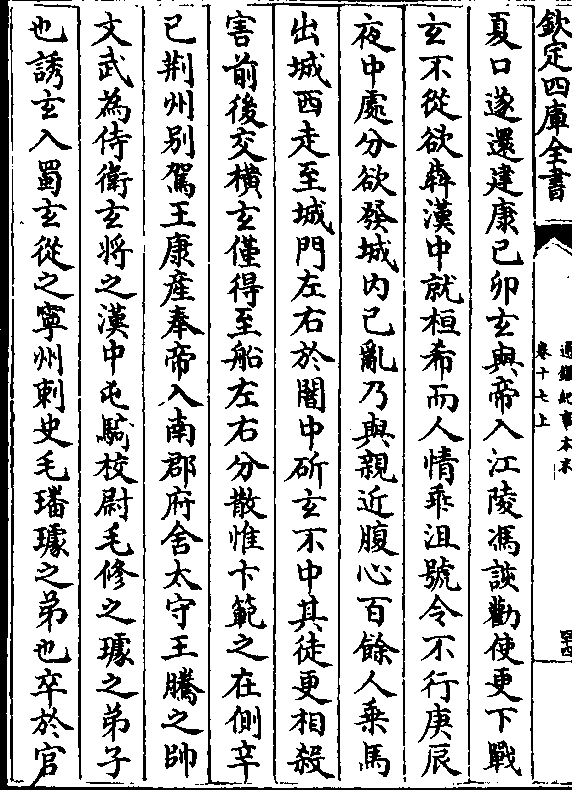 欽定四庫全書
通鑑紀事本末
卷十七上
四四
夏口遂還建康己卯玄與帝入江陵馮該勸使更下戰
玄不從欲犇漢中就桓希而人情乖沮號令不行庚辰
夜中處分欲發城内已亂乃與親近腹心百餘人乗馬
出城西走至城門左右於闇中斫玄不中其徒更相殺
害前後交横玄僅得至船左右分散惟卞範之在側辛
已荆州别駕王康産奉帝入南郡府舍太守王騰之帥
文武為侍衛玄將之漢中屯騎校尉毛修之璩之弟子
也誘玄入蜀玄從之寧州刺史毛璠璩之弟也卒於官